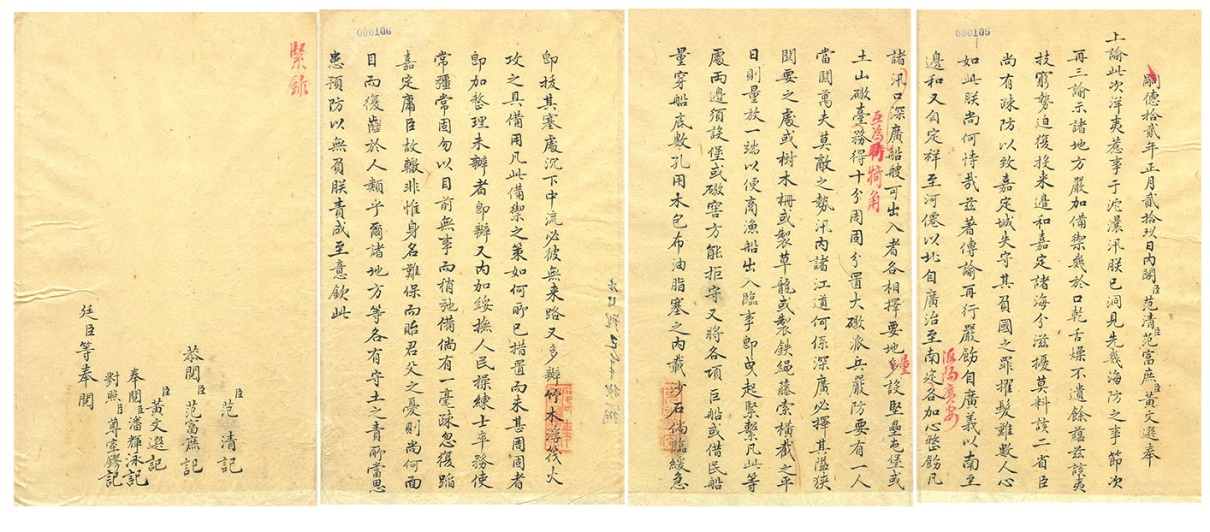 000105
嗣德拾貳年正月貳拾玖日內閣臣范清范富庶臣黃文選奉
上諭此次洋夷惹事于沱㶞汛朕已洞見先幾海防之事節次
再三諭示諸地方嚴加備禦幾於口乾舌燥不遺餘蘊玆該夷
技窮勢迫復投来邊和嘉定諸海分滋擾莫料該二省臣
尚有疎防以致嘉定城失守其負國之罪擢髮難數人心
如此朕尚何恃哉玆著傳諭再行嚴飭自廣義以南至
邊和又自定祥至河僊以北自廣治至南定各加心整飭凡
海陽廣安
諸汛口深廣船艘可出入者各相擇要地多設堅壘屯堡或
量
土山礮臺務得十分周固分置大礮派兵嚴防要有一人
互為犄角
當関萬夫莫敵之勢汛內諸江道何係深廣必擇其溢狹
関要之處或樹木柵或製草龍或製鉄繩藤索橫截之平
日則量放一端以便商漁船出入臨事即曳起緊繫凡此等
處兩邊須設堡或礮窖方能拒守又將各項巨船或借民船
量穿船底數孔用木包布油脂塞之內載沙石倘臨緩急
000106
即拔其塞處沉下中流必彼無来路又多辦竹木浮筏火
攻之具備用凡此備禦之策如何所已措置而未甚周固者
即加整理未辦者即辦又內加綏撫人民操練士卒務使
常彊常固勿以目前無事而稍弛備倘有一毫疎忽復蹈
嘉定庸臣故轍非惟身名難保而貽君父之憂則尚何面
目而復齒於人類乎爾諸地方等各有守土之責所當思
患預防以無負朕責成至意欽此
緊錄
臣范清記
恭閱臣范富庶記
臣黃文選記
奉閱臣潘輝泳記
對照臣尊室鏐記
廷臣等奉閱